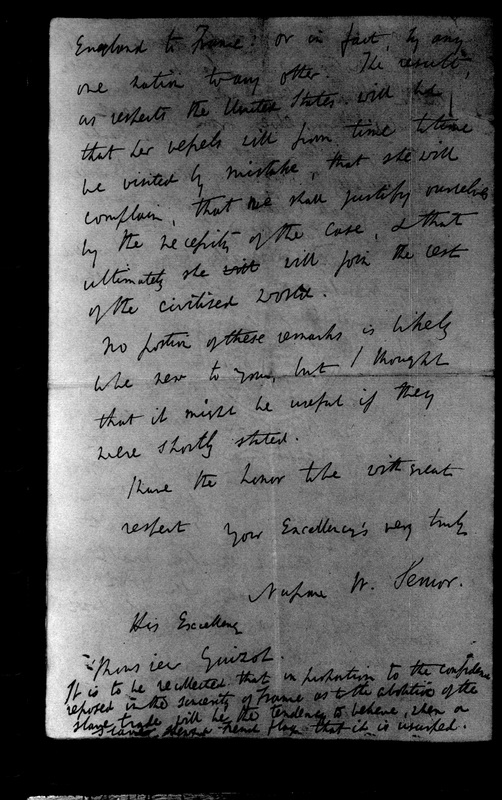 England to France: or in fact, by any
one nation to any other. The result,
as respects the United States will be,
that her vessels will from time to time
be visited by mistake, that she will
complain, that we shall justify ourselves
by the necessity of the case, & that
ultimately she will will join the rest
of the civilised world.
No portion of these remarks is likely
to be new to you, but I thought
that it might be useful if they
were shortly stated.
I have the honor to be with great
respect your Excellency's very truly
Nassau W. Senior.
His Excellency
Monsieur Guizot.
It is to be recollected that in proportion to the confidence
reposed in the sincerity of France as to the abolition of the
slave trade will be the tendency to believe, when a
slaver a French flag that it is usurped.